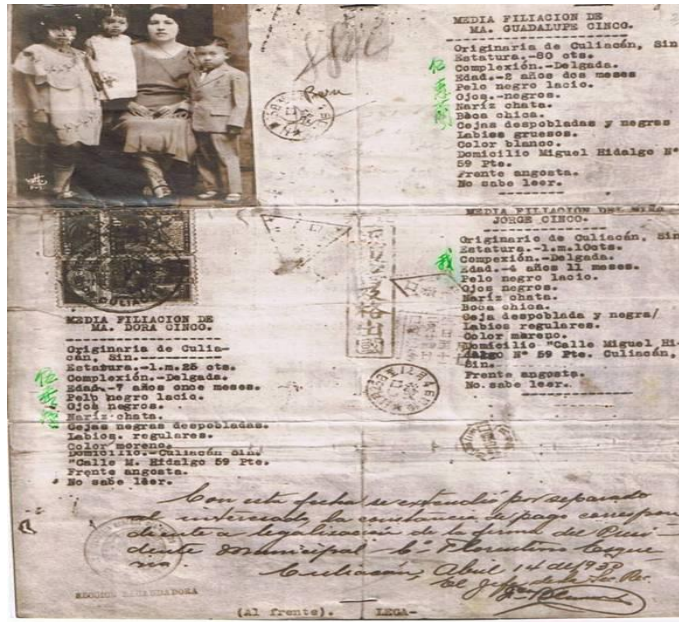 MEDIA FILIACION DE
MA. GUADALUPE CINCO.
Originaria de Culiacán, Sin
Estatura.-80 cts.
Complexión.-Delgada.
Edad.-2 años dos meses
Pelo negro lacio.
Ojos.-negros.
Nariz chata.
Boca chica.
Cejas despobladas y negras
Labios gruesos.
Color blanco.
Domicilio Miguel Hidalgo Nº
59 Pte.
Frente angosta.
No sabe leer.
MEDIA FILIACION DEL NIÑO
JORGE CINCO.
Originario de Culiacán, Sin
Estatura.-1.m.10cts.
Compexión.-Delgada.
Edad.-4 años 11 meses.
Pelo negro lacio.
Ojos negros.
Nariz chata.
Boca chica.
Ceja despoblada y negra/
Labios regulares.
Color moreno.
Domicilio "Calle Miguel Hi-
dalgo Nº 59 Pte. Culiacán,
Sin.
Frente angosta.
No.sabe leer.
MEDIA FILIACION DE
MA. DORA CINCO.
Originaria de Culia-
cán, Sin.
Estatura.-1.m.25 cts.
Complexión.-Delgada.
Edad.-7 años once meses.
Pelo negro lacio.
Ojos negros.
Nariz chata.
Cejas negras despobladas.
Labios. regulares.
Color moreno.
Domicilio.-Culiacán Sin.
"Calle M. Hidalgo 59 Pte.
Frente angosta.
No sabe leer.
Con esta fecha se extendió por separado
al interesado, la constancia de pago correspon
diente a legalización de la firma del Presi-
dente Municipal C. Florentino
Culiacán, Abril 14 de 1937
El Jefe de la
(Al frente). LEGA-